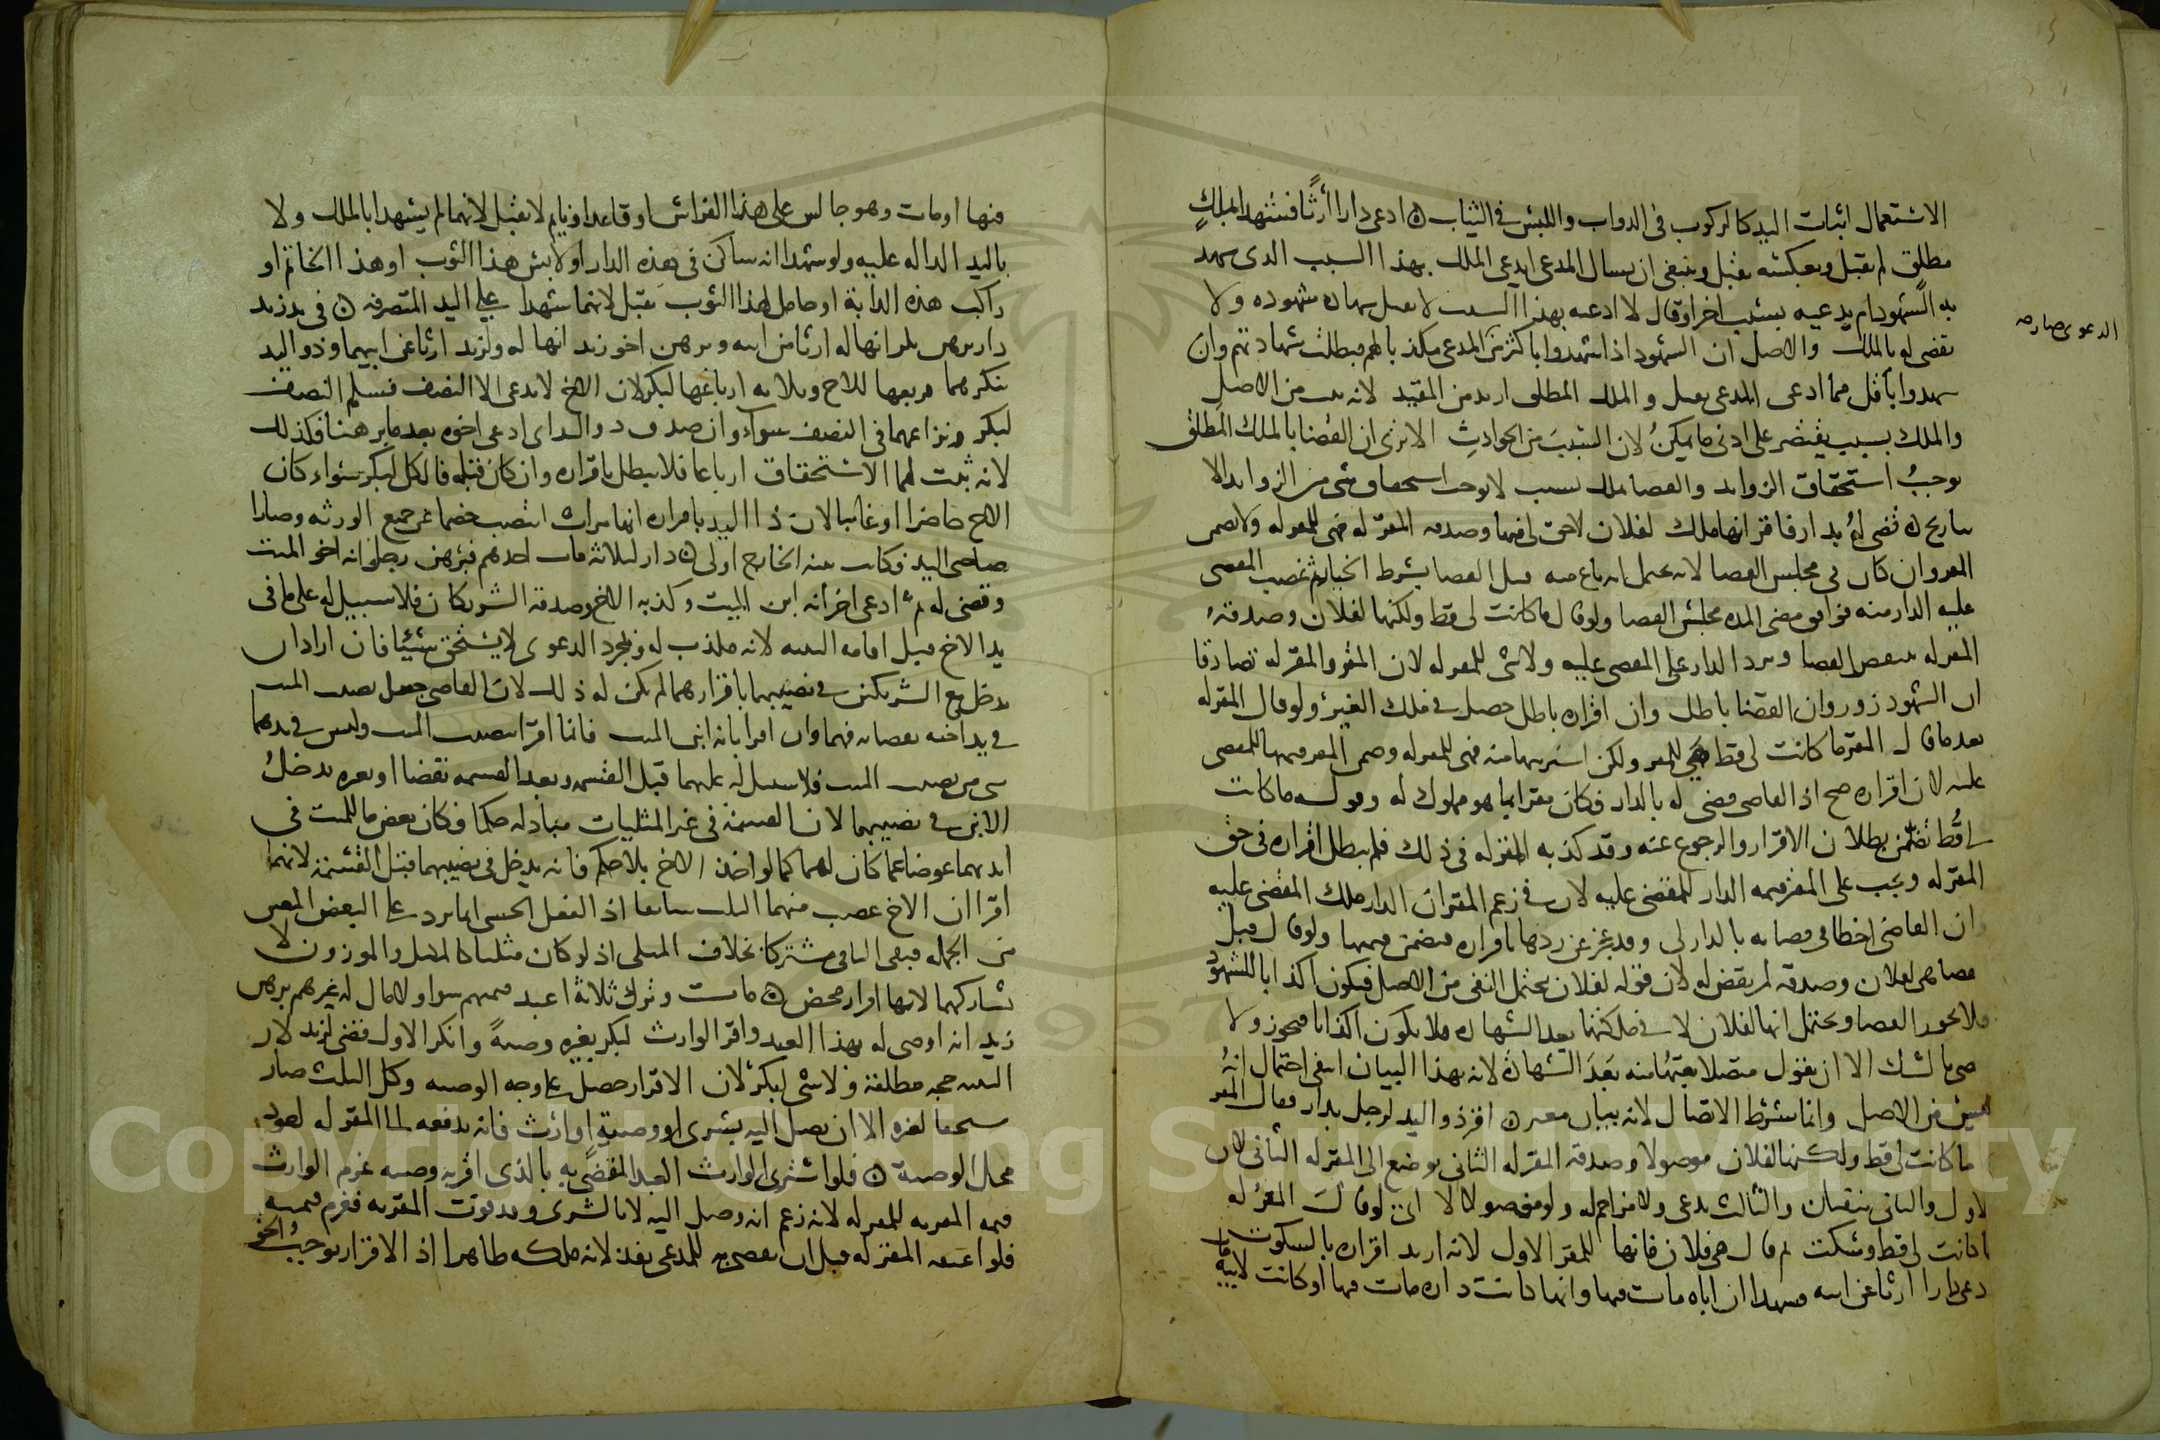 الاستعمال اثبات اليد كالركوب في الدواب واللبس في الثياب ادعى دارا ارثا فشهدا بملك
مطلق لم يقبل وبعكسه يقبل وينبغي ان يسال المدعي ايدعي الملك بهذا السبب الذي شهد
به الشهود ام يدعيه بسبب اخر او قال لا ادعيه بهذا السبب لا تقبل شهادة شهوده ولا
يقضى له بالملك والاصل ان الشهود اذا شهدوا باكثر من المدعى مكذبا لهم فبطلت شهادتهم وان
شهدوا باقل مما ادعى المدعي تقبل والملك المطلق ازيد من المقيد لانه يثبت من الاصل
والملك بسبب يقتصر على ادنى ما يمكن لان السبب من الحوادث الا ترى ان القضا بالملك المطلق
يوجب استحقاق الزوايد والقضا بملك بسبب لا يوجب استحقاق شي من الزوايد الا
بتاريخ قضي له بدار فاقر انها ملك لفلان لا حق لي فيها وصدقه المقر له فهي للمقر له ولا يضمن
المقر وان كان في مجلس القضا لانه يحتمل انه باع منه قبل القضا بشرط الخيار ثم غصب المقضي
عليه الدار منه فوافق مضي المدة مجلس القضا ولو قال ما كانت لي قط ولكنها لفلان وصدقه
المقر له ينقض القضا وترد الدار على المقضي عليه ولا شي للمقر له لان المقر والمقر له تصادقا
ان الشهود زور وان القضا باطل وان اقراره باطل حصل في ملك الغير ولو قال المقر له
بعد ما قال المقر ما كانت لي قط هي للمقر ولكن اشتريتها منه فهي للمقر له وضمن المقر قيمتها للمقضي
عليه لان اقراره صح اذ القاضي قضى له بالدار فكان مقرا بما هو مملوك له وقوله ما كانت
لي قط تضمن بطلان الاقرار والرجوع عنه وقد كذبه المقر له في ذلك فلم يبطل اقراره في حق
المقر له ويجب على المقر قيمة الدار للمقضي عليه لان في زعم المقر ان الدار ملك المقضي عليه
وان القاضي اخطا في قضايه بالدار لي وقد عجز عن ردها باقراره فيضمن قيمتها ولو قال قبل
قضا هي لفلان وصدقه لم يقض له لان قوله لفلان يحتمل النفي من الاصل فيكون اكذابا للشهود
فلا يجوز القضا ويحتمل انها لفلان لاني ملكتها بعد الشهادة فلا يكون اكذابا فيجوز ولا
يقضى بالشك الا ان يقول متصلا بعتها منه بعد الشهادة لانه بهذا البيان انتفى احتمال انه
ليس من الاصل وانما شرط الاتصال لانه بيان مغير اقر ذو اليد لرجل بدار فقال المقر
ما كانت لي قط ولكنها لفلان موصولا وصدقه المقر له الثاني يوضع الى المقر له الثاني لان
الاول والثاني ينفيان والثالث يدعي ولا مزاحم له ولو مفصولا لا اي لو قال المقر له
ما كانت لي قط وسكت ثم قال هي لفلان فانها للمقر الاول لانه ارتد اقراره بالسكوت
ادعى دارا ارثا عن ابيه فشهدا ان اباه مات فيها وانها كانت داره مات فيها او كانت لابيه
الدعوى صارت
فيها او مات وهو جالس على هذا الفراش او قاعد او نايم لا يقبل لانهما لم يشهدا بالملك ولا
باليد الدالة عليه ولو شهدا انه ساكن في هذه الدار او لابس هذا الثوب او هذا الخاتم او
راكب هذه الدابة او حامل لهذا الثوب يقبل لانهما شهدا على اليد المتصرفة في يد زيد
دار برهن بكر انها له ارثا من ابيه وبرهن اخو زيد انها له ولزيد ارثا عن ابيهما وذو اليد
ينكرهما فربعها للاخ وثلاثة ارباعها لبكر لان الاخ لا يدعي الا النصف فسلم النصف
لبكر ونزاعهما في النصف سواء وان صدق ذو اليد اي ادعى اخوه بعد ما برهنا فكذلك
لانه ثبت لهما الاستحقاق ارباعا فلا يبطل باقراره وان كان قبله فالكل لبكر سواء كان
الاخ حاضرا او غايبا لان ذا اليد باقراره انها ميراث انتصب خصما عن جميع الورثة وصارا
صاحبي اليد فكانت بينة الخارج اولى دار لثلاثة مات احدهم فبرهن رجل انه اخو الميت
وقضي له ثم ادعى اخر انه ابن الميت وكذبه الاخ وصدقه الشريكان فلا سبيل له على ما في
يد الاخ قبل اقامة البينة لانه مكذب له وبمجرد الدعوى لا يستحق شيئا فان اراد ان
يدخل مع الشريكين في نصيبهما باقرارهما لم يكن له ذلك لان القاضي جعل نصيب الميت
في يد اخيه بقضائه فهما وان اقرا بانه ابن الميت فانما اقرا بنصيب الميت وليس في يدهما
شي من نصيب الميت فلا سبيل له عليهما قبل القسمة وبعد القسمة بقضا او بغيره يدخل
الابن في نصيبهما لان القسمة في غير المثليات مبادلة حكما فكان بعض ما للميت في
ايديهما عوضا عما كان لهما كما لو اخذ الاخ بلا حكم فانه يدخل في نصيبهما قبل القسمة لانهما
اقرا ان الاخ غصب منهما الثلث شايعا اذ الفعل الحسي انما يرد على البعض المعين
من الجملة فبقي الباقي مشتركا بخلاف المثلي اذ لو كان مثليا كالمكيل والموزون لا
يشاركهما لانها افراز محض مات وترك ثلاثة اعبد قيمتهم سواء ولا مال له غيرهم برهن
زيد انه اوصى له بهذا العبد واقر الوارث لبكر بغيره وصية وانكر الاول فقضي لزيد لان
البينة حجة مطلقة ولا شي لبكر لان الاقرار حصل على وجه الوصية وكل الثلث صار
مستحقا لغيره الا ان يصل اليه بشرى او وصية او ارث فانه يدفعه الى المقر له لعود
محل الوصية فلو اشترى الوارث العبد المقضي به بالذي اقر به وصية غرم الوارث
قيمة المقر به للمقر له لانه زعم انه وصل اليه لانه بالشرى وقد فوت المقر به فغرم قيمته
فلو اعتقه المقر له قبل ان يقضى به للمدعي نفذ لانه ملكه ظاهرا اذ الاقرار يوجب الحق